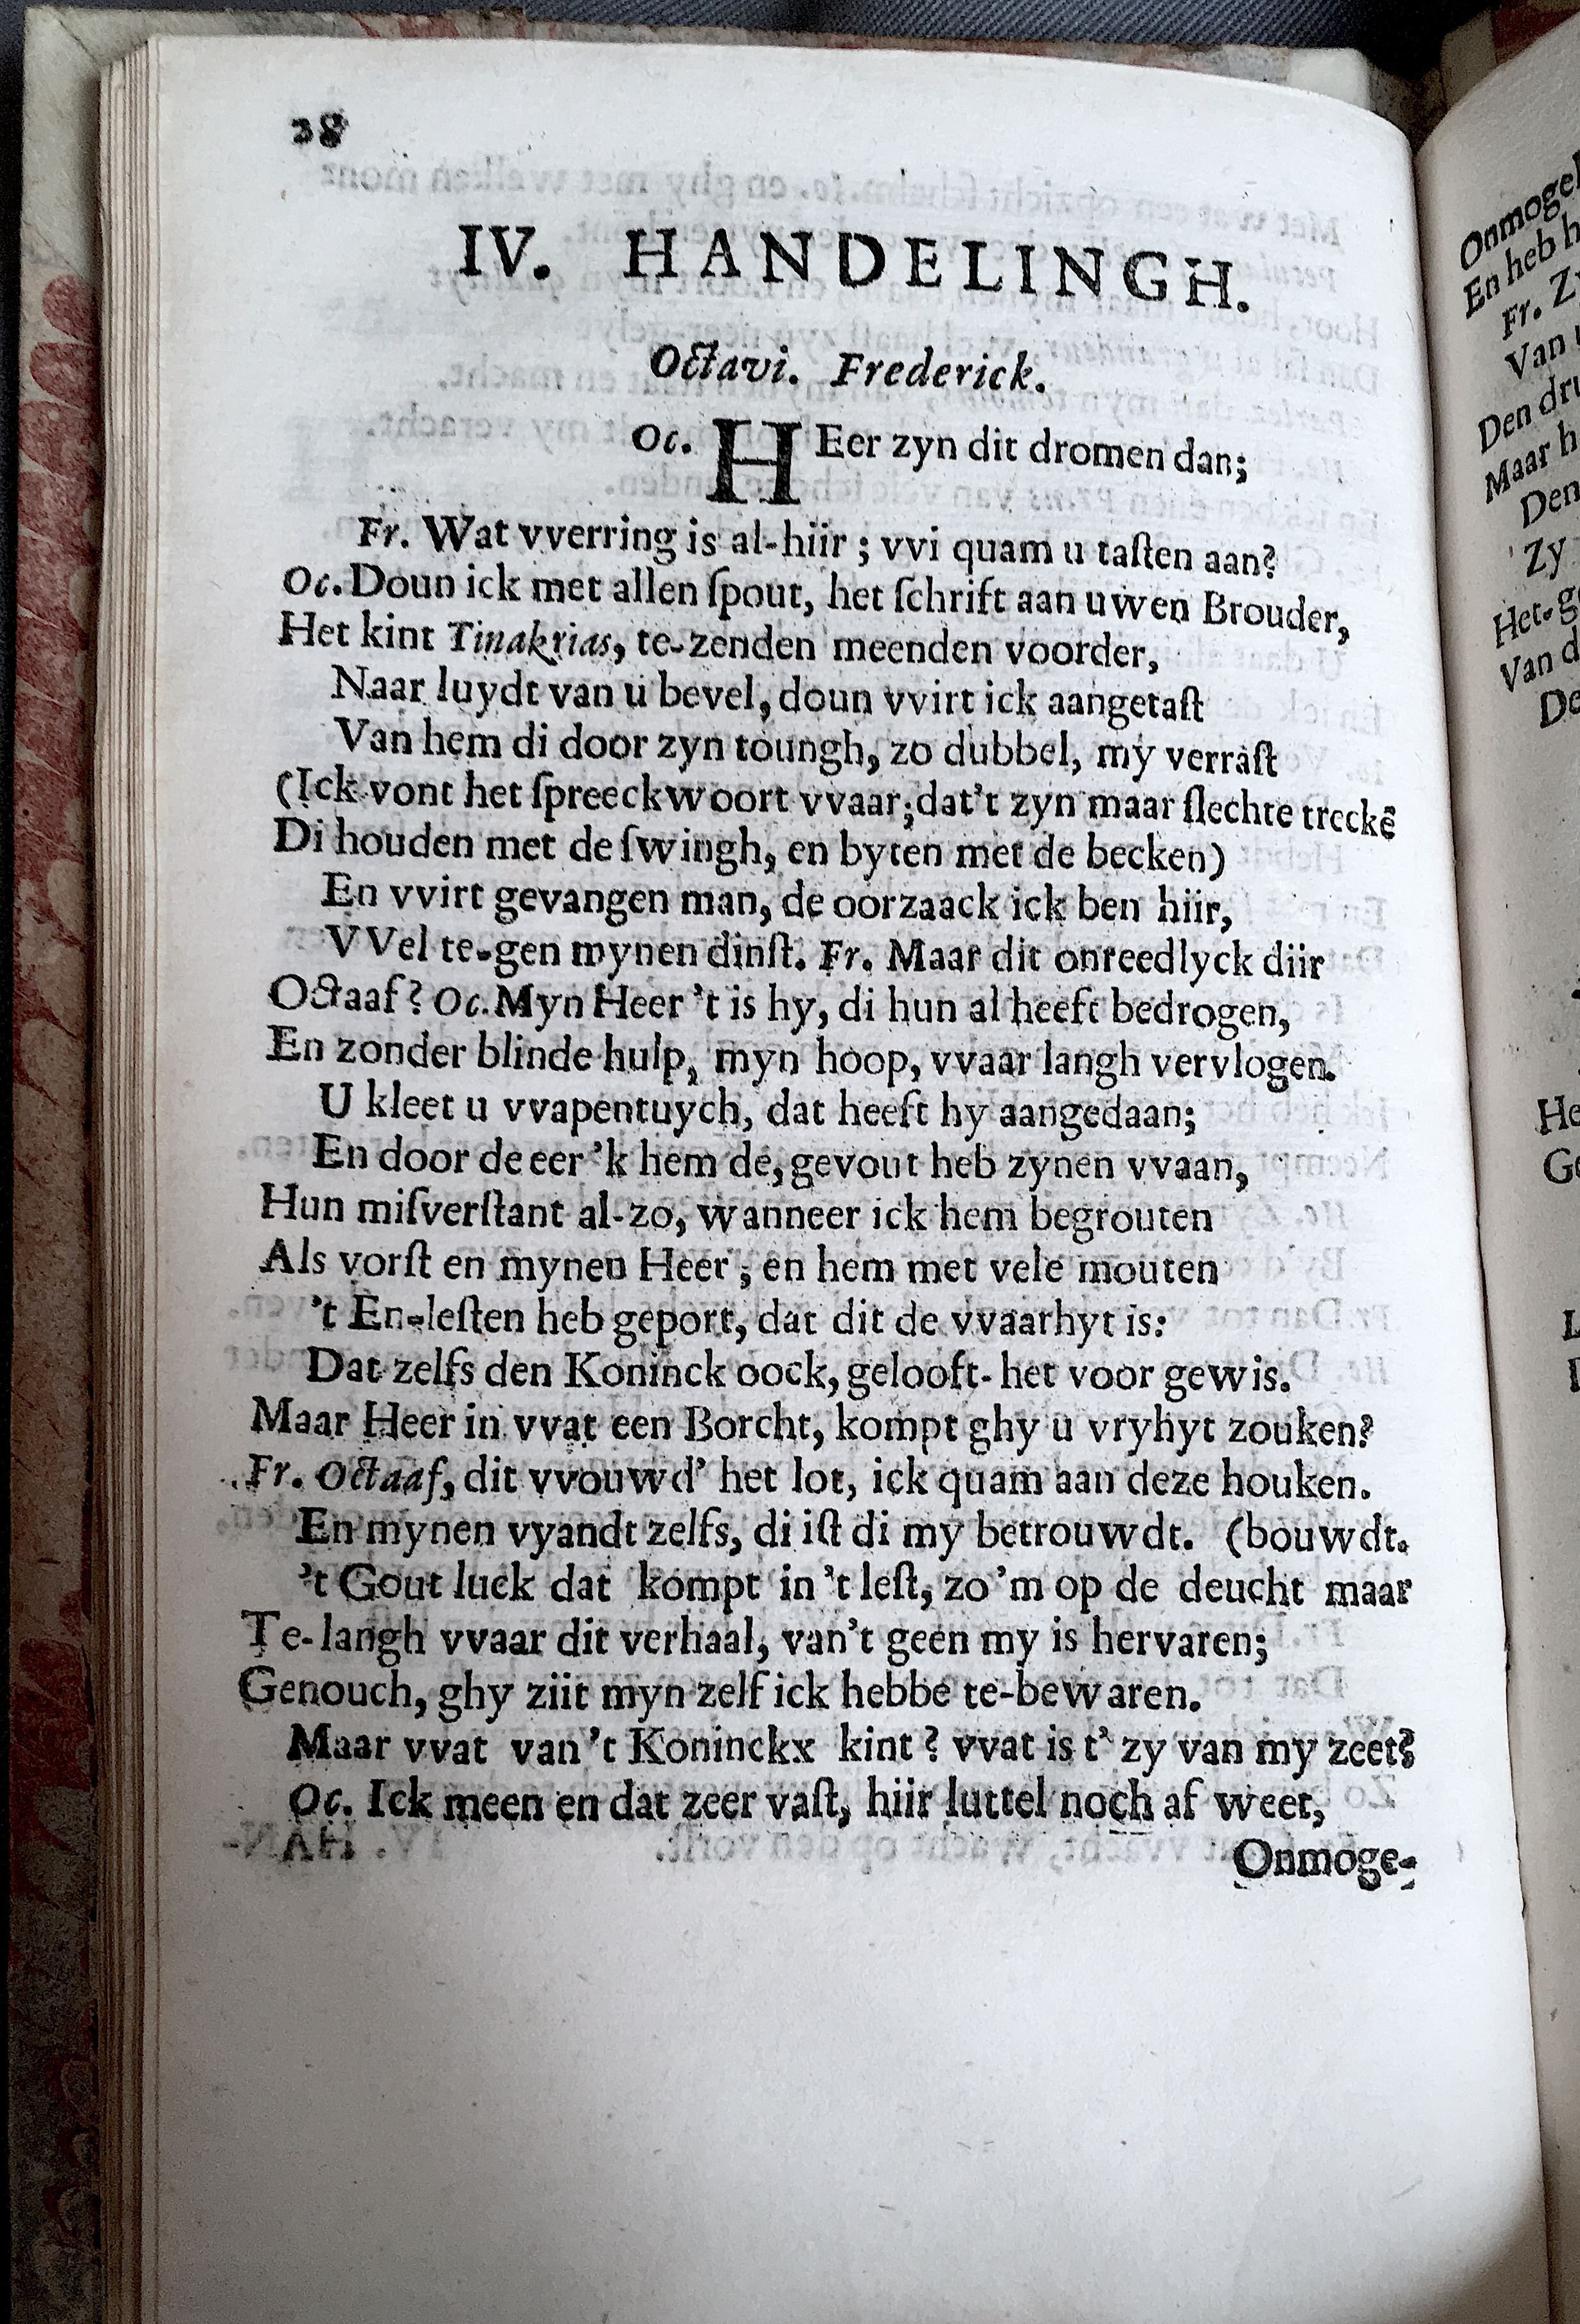 28
IV. HANDELINGH.
Octavi. Frederick.
Oc. HEer zyn dit dromen dan;
Fr. Wat vverring is al-hiir; vvi quam u taſten aan?
Oc. Doun ick met allen ſpout, het ſchrift aan uwen Brouder,
Het kint Tinakrias, te-zenden meenden voorder,
Naar luydt van u bevel, doun vvirt ick aangetaſt
Van hem di door zyn toungh, zo dubbel, my verraſt
(Ick vont het ſpreeckwoort vvaar; dat't zyn maar ſlechte treckē
Di houden met de ſwingh, en byten met de becken)
En vvirt gevangen man, de oorzaack ick ben hiir,
VVel te-gen mynen dinſt. Fr. Maar dit onreedlyck diir
Octaaf? Oc. Myn Heer 't is hy, di hun al heeft bedrogen,
En zonder blinde hulp, myn hoop, vvaar langh vervlogen.
U kleet u vvapentuych, dat heeft hy aangedaan;
En door de eer 'k hem de, gevout heb zynen vvaan,
Hun miſverſtant al-zo, wanneer ick hem begrouten
Als vorſt en mynen Heer; en hem met vele mouten
't En-leſten heb geport, dat dit de vvaarhyt is:
Dat zelfs den Koninck oock, gelooft-het voor gewis.
Maar Heer in vvat een Borcht, kompt ghy u vryhyt zouken?
Fr. Octaaf, dit vvouwd' het lot, ick quam aan deze houken.
En mynen vyandt zelfs, di iſt di my betrouwdt. (bouwdt.
't Gout luck dat kompt in 't leſt, zo 'm op de deucht maar
Te-langh vvaar dit verhaal, van't geen my is hervaren;
Genouch, ghy ziit myn zelf ick hebbe te-bewaren.
Maar vvat van 't Koninckx kint? vvat is t' zy van my zeet?
Oc. Ick meen en dat zeer vaſt, hiir luttel noch af weet,
Onmoge-
Onmogel
En heb h
Fr. Zy
Van
Den dru
Maar h
Den
Zy
Het-ge
Van d
De
He
Ge